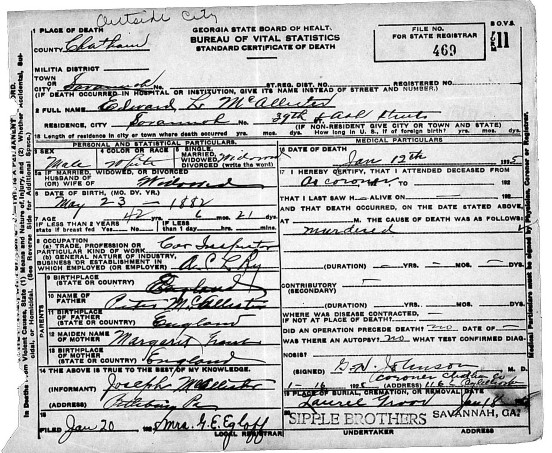 Outside City
1 PLACE OF DEATH
COUNTY Chatham
GEORGIA STATE BOARD OF HEALTH
BUREAU OF VITAL STATISTICS
STANDARD CERTIFICATE OF DEATH
FILE NO.
FOR STATE REGISTRAR
469
B.O.V.S.
11
MILITIA DISTRICT
TOWN OR
CITY Savannah ST. REG. DIST. NO. REGISTERED NO.
(IF DEATH OCCURRED IN HOSPITAL OR INSTITUTION, GIVE ITS NAME INSTEAD OF STREET AND NUMBER.)
2 FULL NAME Edward McAllister
RESIDENCE, CITY Savannah 39th Streets
(IF NON-RESIDENT GIVE CITY OR TOWN AND STATE)
Length of residence in city or town where death occurred yrs. mos. ds. How long in U.S., if of foreign birth? yrs. mos. ds.
PERSONAL AND STATISTICAL PARTICULARS.
3 SEX Male
4 COLOR OR RACE White
5 SINGLE, MARRIED, WIDOWED, DIVORCED (write the word) Widowed
IF MARRIED, WIDOWED OR DIVORCED
HUSBAND OF
(OR) WIFE OF Widowed
6 DATE OF BIRTH (MO. DY. YR.)
May 23 1882
7 AGE 42 yrs. 6 mos. 21 ds.
IF LESS THAN 2 YEARS
state if breast fed Yes No
IF LESS than
1 day hrs. mins.
8 OCCUPATION
(a) TRADE, PROFESSION OR
PARTICULAR KIND OF WORK Car Inspector
(b) GENERAL NATURE OF INDUSTRY,
BUSINESS OR ESTABLISHMENT IN
WHICH EMPLOYED (OR EMPLOYER) A.C.L. Ry
9 BIRTHPLACE
(STATE OR COUNTRY) England
PARENTS
10 NAME OF
FATHER Peter McAllister
11 BIRTHPLACE OF
FATHER (STATE OR COUNTRY) England
12 MAIDEN NAME
OF MOTHER Margaret
13 BIRTHPLACE
OF MOTHER (STATE OR COUNTRY) England
14 THE ABOVE IS TRUE TO THE BEST OF MY KNOWLEDGE.
(INFORMANT) Joseph McAllister
(ADDRESS) Pittsburg Pa
15
FILED Jan 20 192 5 Mrs. G.E. Egloff
LOCAL REGISTRAR
MEDICAL PARTICULARS
16 DATE OF DEATH
Jan 12th 192 5
17 I HEREBY CERTIFY, THAT I ATTENDED DECEASED FROM
As coroner TO 192
THAT I LAST SAW H ALIVE ON
AND THAT DEATH OCCURRED, ON THE DATE STATED ABOVE, AT
M. THE CAUSE OF DEATH WAS AS FOLLOWS:
murdered
(DURATION) YRS. MOS. DS.
CONTRIBUTORY
(SECONDARY)
(DURATION) YRS. MOS. DS.
WHERE WAS DISEASE CONTRACTED,
IF NOT AT PLACE OF DEATH?
DID AN OPERATION PRECEDE DEATH? no DATE OF
WAS THERE AN AUTOPSY? no WHAT TEST CONFIRMED DIAG-
NOSIS?
(SIGNED) G.H. Johnson M.D.
Coroner Chatham Co
1-16 192 5 (ADDRESS) 116 E
PLACE OF BURIAL, CREMATION, OR REMOVAL DATE
Laurel Grove Jan 18
SIPPLE BROTHERS SAVANNAH, GA.
UNDERTAKER ADDRESS